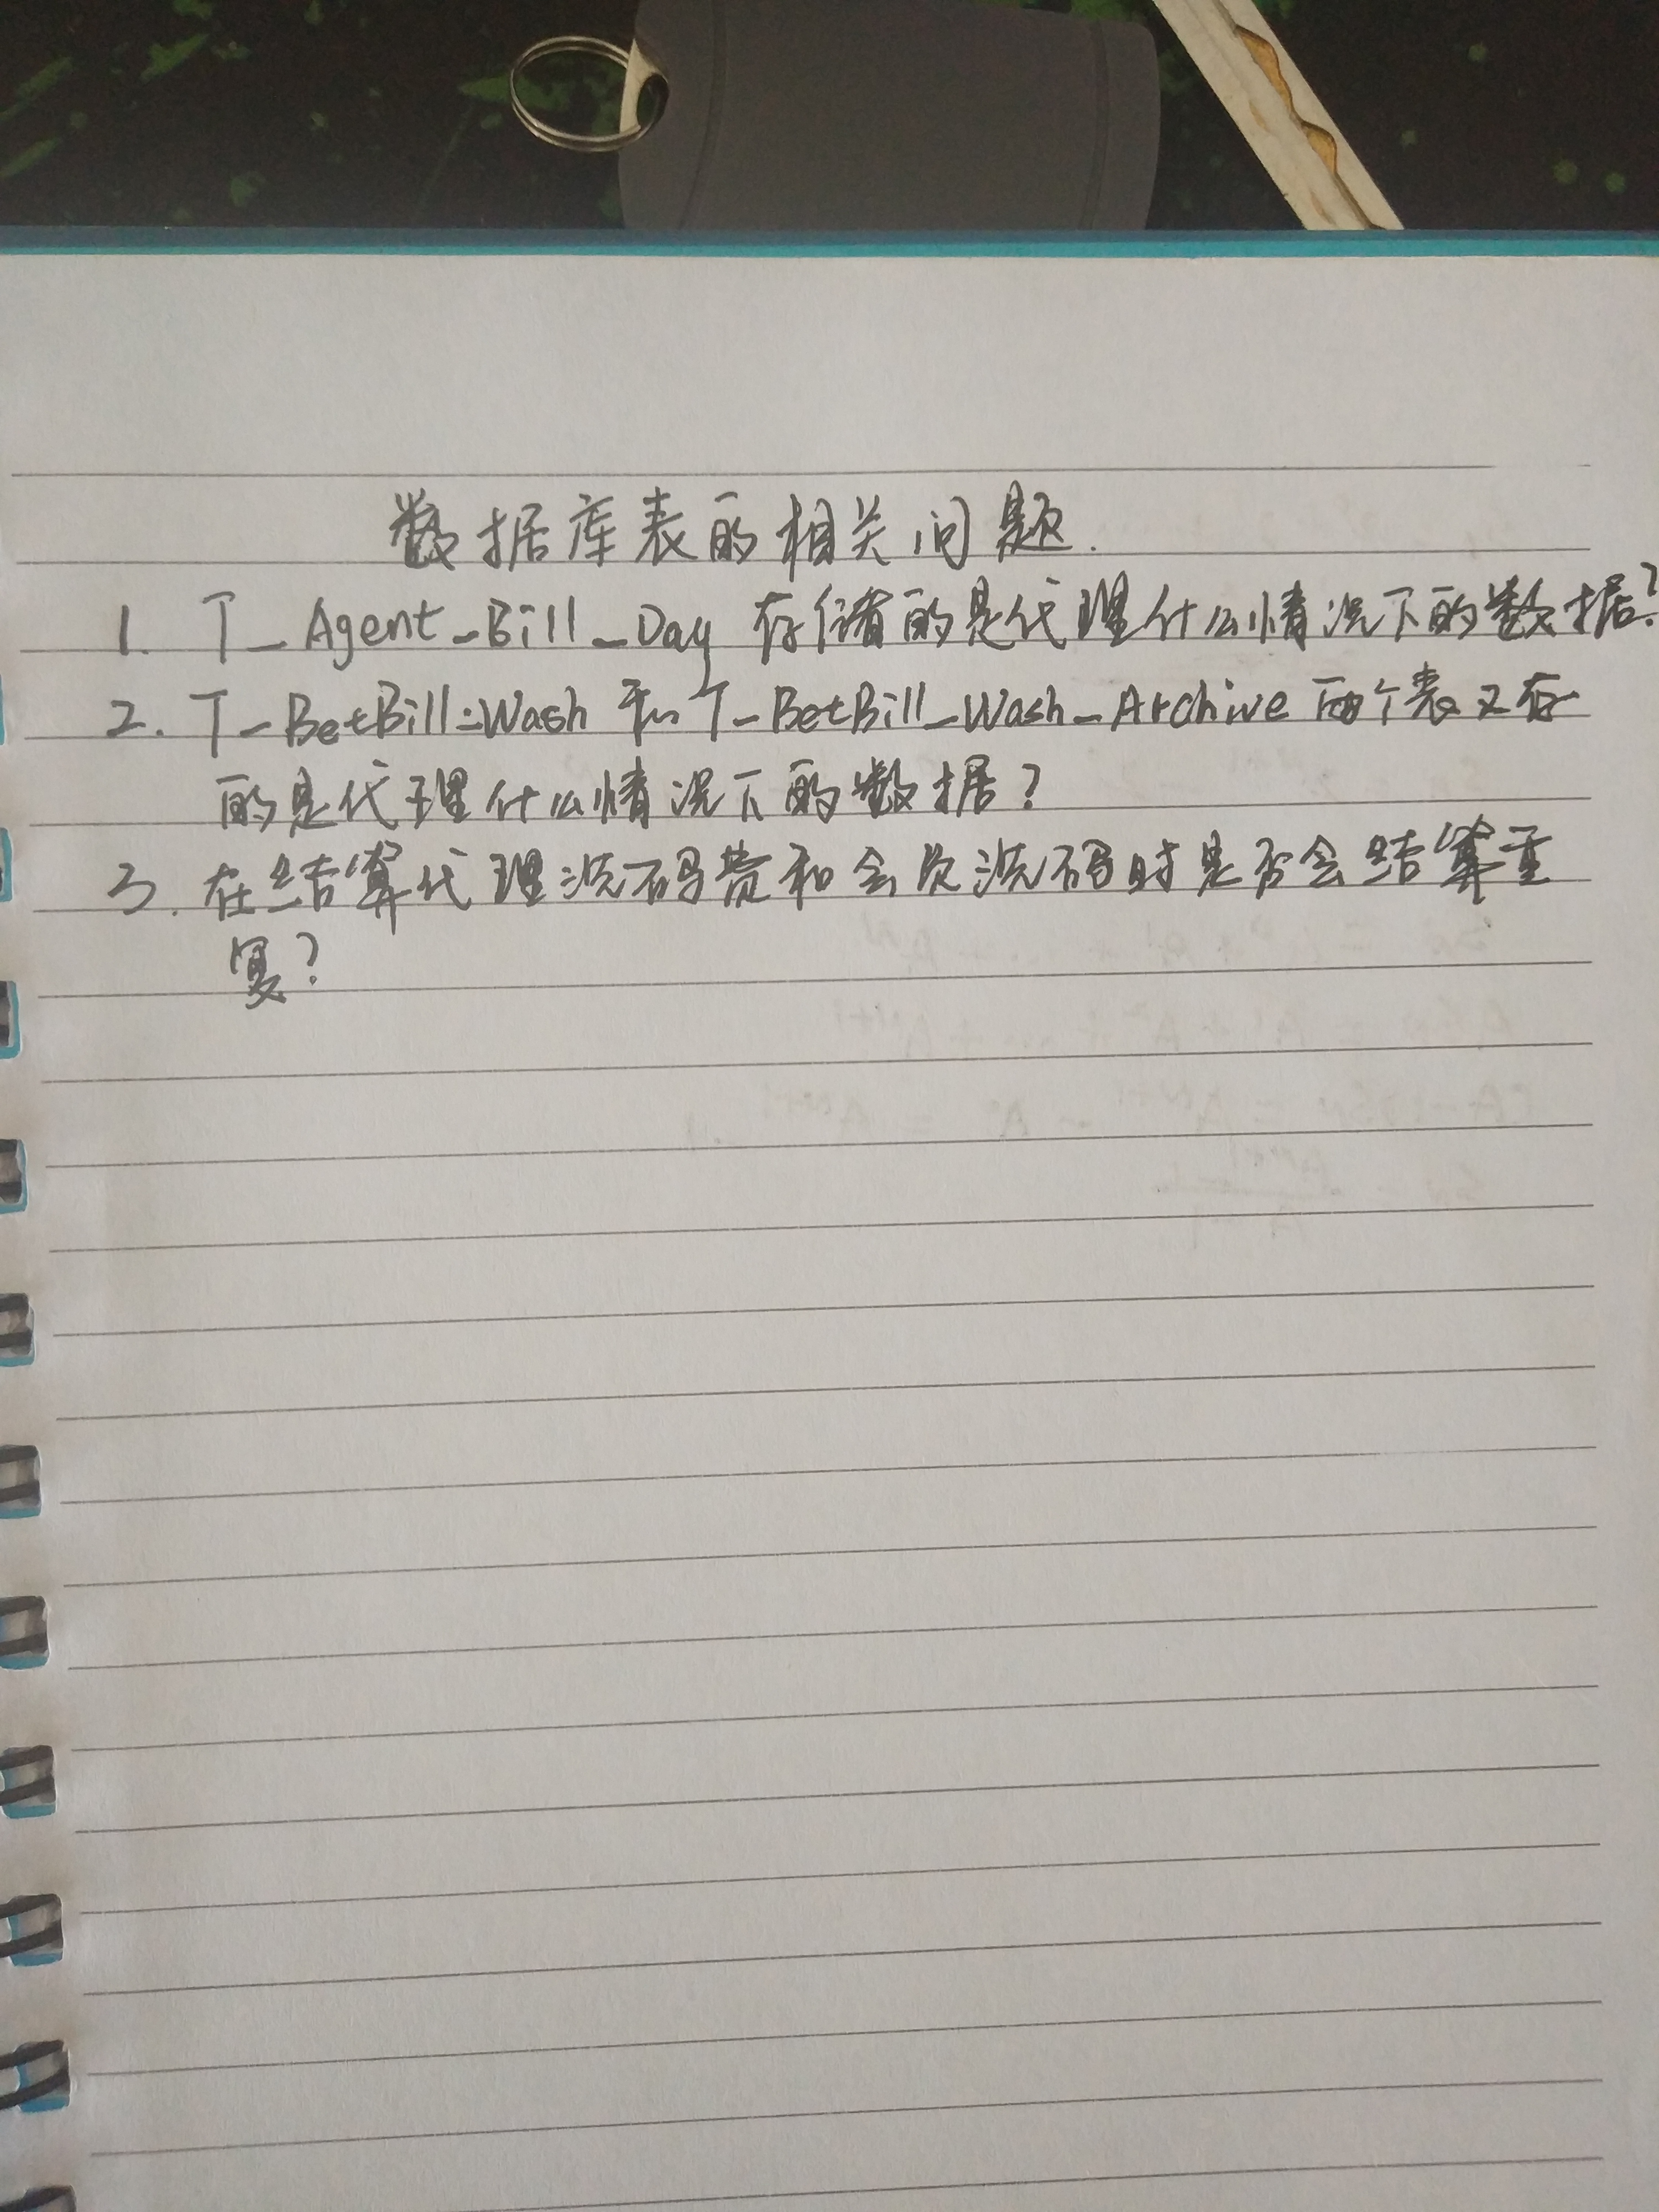 数据库表的相关问题.
1. T_Agent_Bill_Day 存储的是代理什么情况下的数据?
2. T_BetBill_Wash 和 T_BetBill_Wash_Archive 两个表又存
的是代理什么情况下的数据?
3. 在结算代理洗码费和会员洗码时是否会结算重
复?